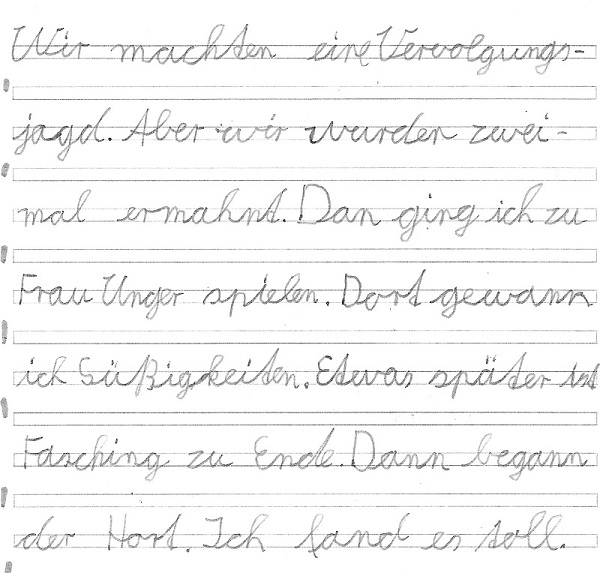 Wir machten eine Vervolgungs-
jagd. Aber wir wurden zwei-
mal ermahnt. Dan ging ich zu
Frau Unger spielen. Dort gewann
ich Süßigkeiten. Etwas später ist
Fasching zu Ende. Dann begann
der Hort. Ich fand es toll.